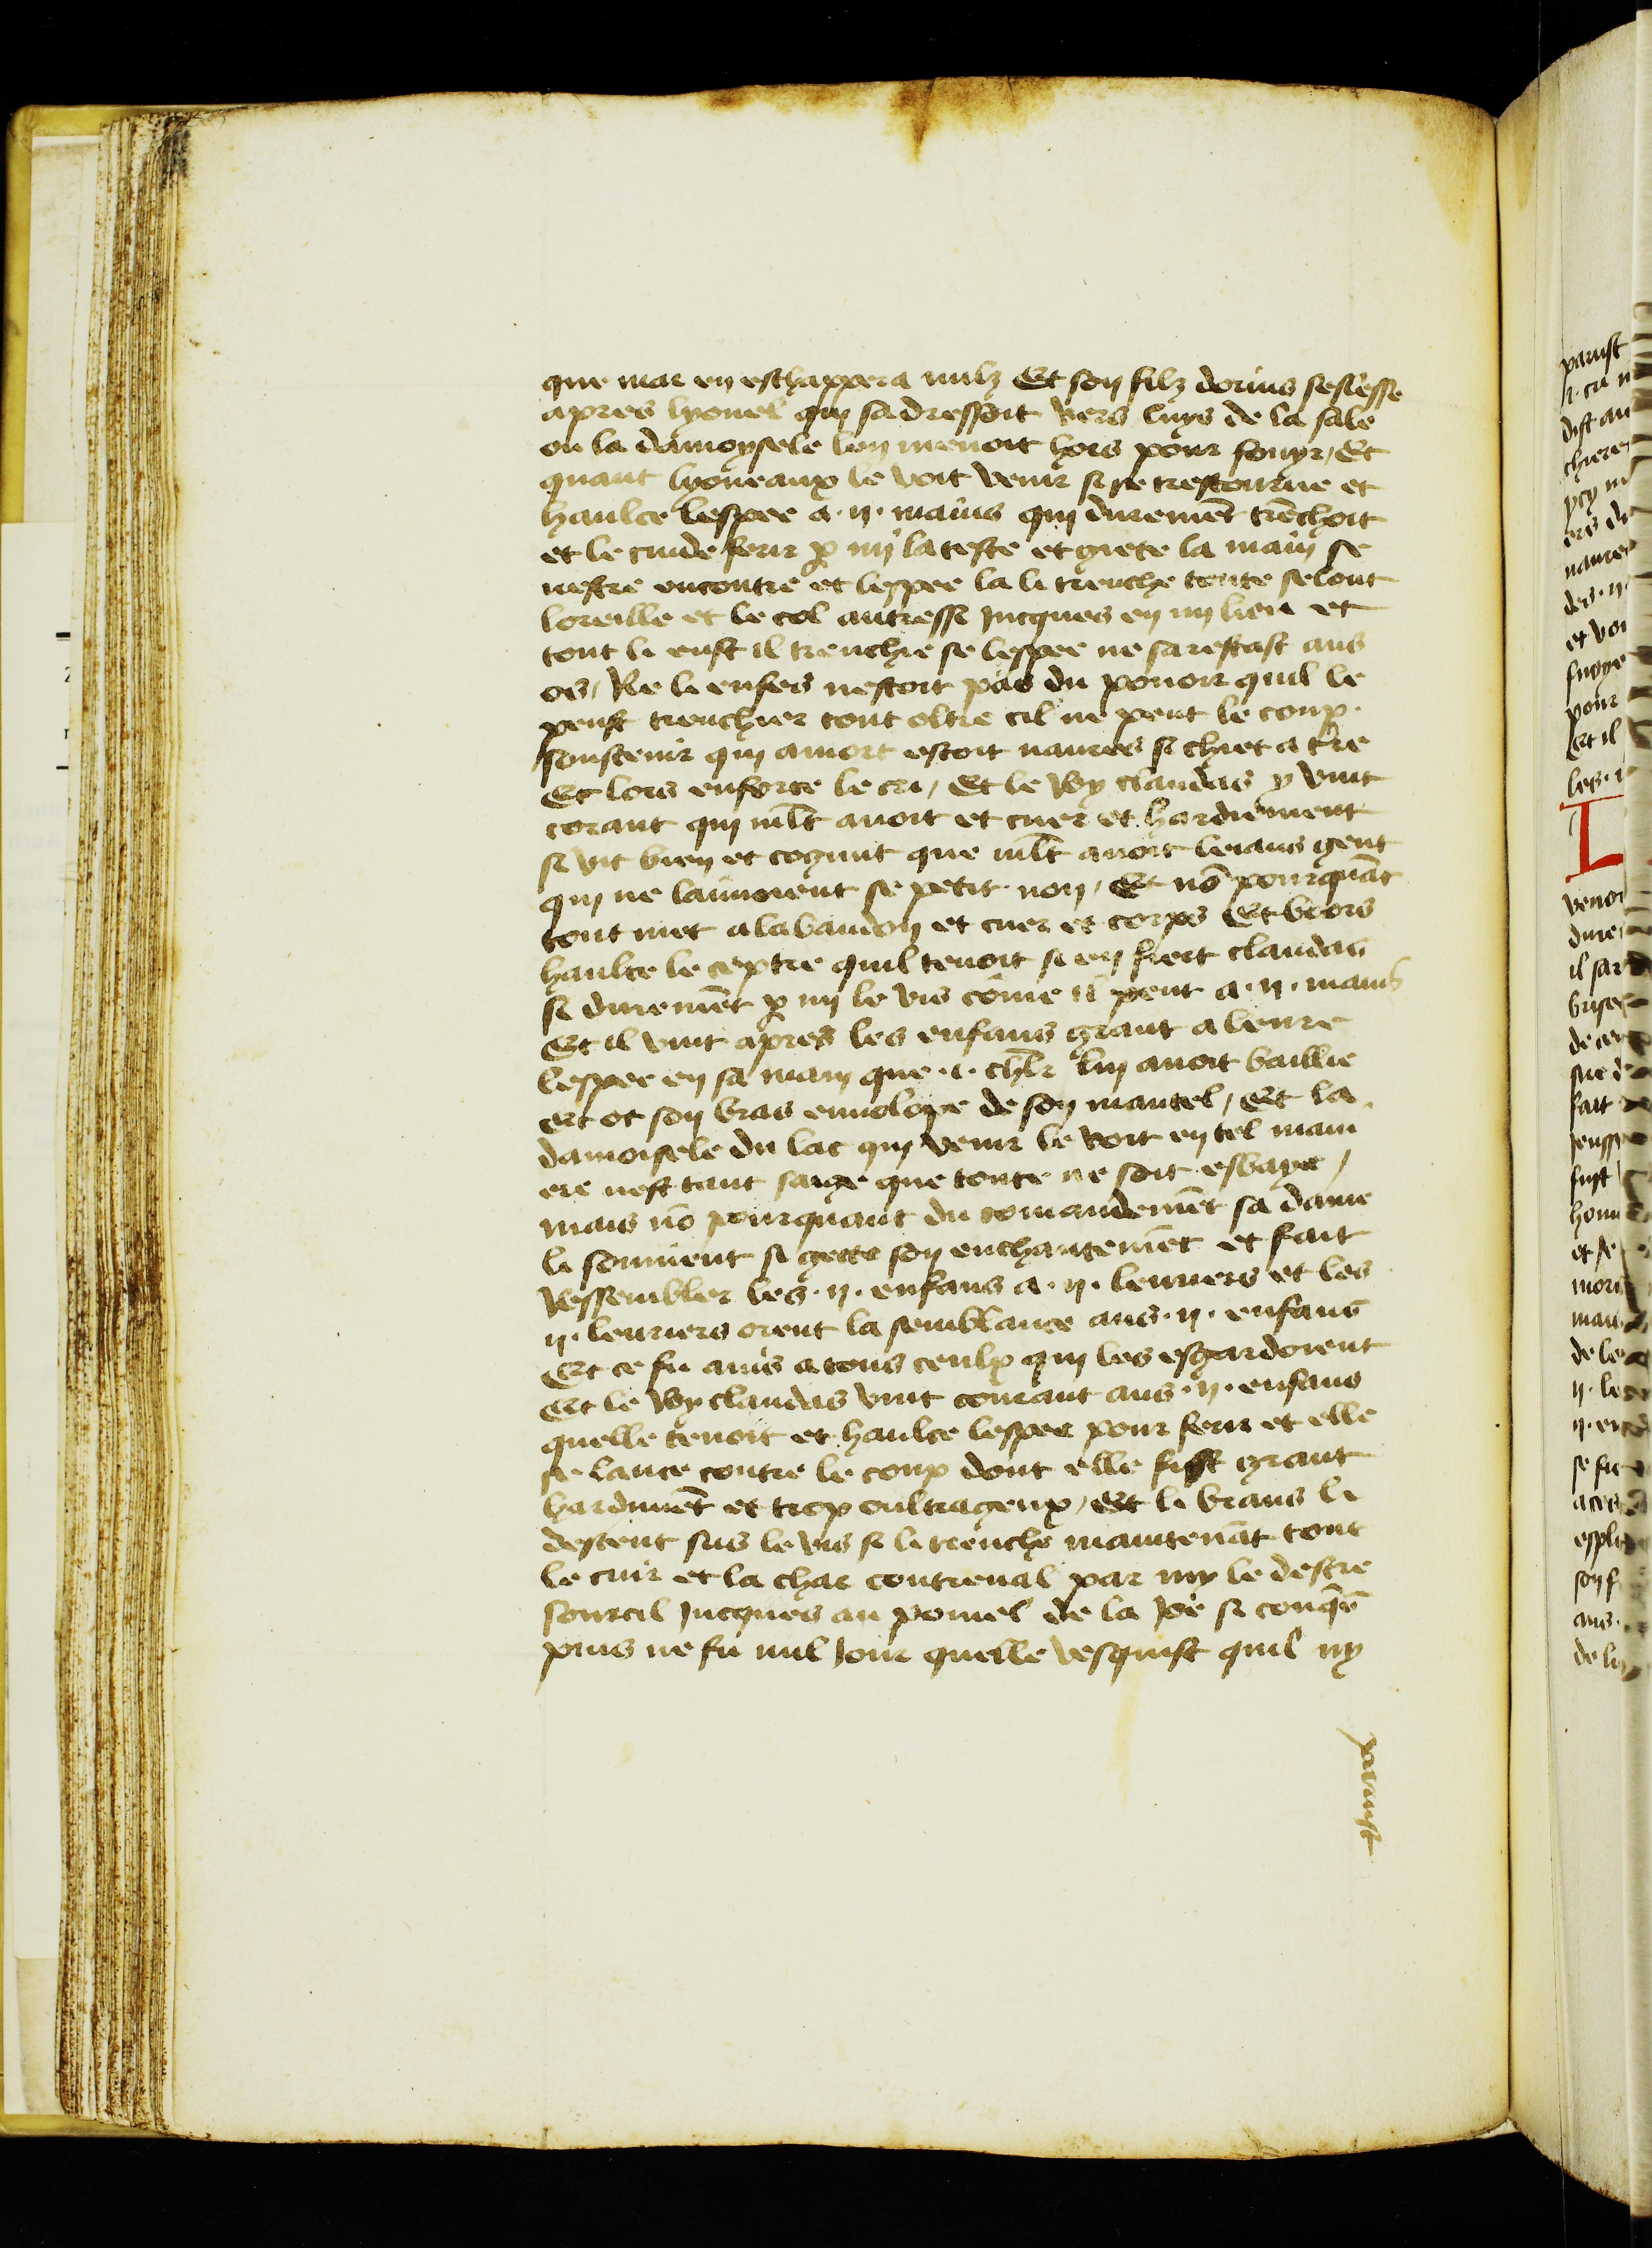 que mar en eschappera nulz Et son filz dorins seslesse
apres lyonel qui sadressoit vers luys de la sale
ou la damoysele len menoit hors pour fouyr / Et
quant lyoneaux le voit venir si se trestourne et
haulce lespee a .ij. mains qui duremēt trēchoit
et le cuide ferir ꝑ my la teste et giete la main se
nestre encontre et lespee la li trenche toute selont
loreille et le col autressi jucques en my lieu et
tout li eust il trenchie se lespee ne sarestast aus
os / Ne li enfes nestoit pas du pouoir quil le
peust trenchier tout oltre cil ne peut le coup
soustenir qui amort estoit naures si chiet a tr̄e
Et lors enforce le cri / Et le Roy claudas y vint
corant qui ml̄t auoit et cuer et hardiement
si vit bien et cognut que ml̄t auoit leians gent
qui ne laimoient se petit non / Et nō pourquāt
tout met alabandon et cuer et corps Et boors
haulce le ceptre quil tenoit si en fiert claudas
si duremēt ꝑ my le vis cōme il peut a .ij. mains
Et il vint apres les enfans grant aleure
lespee en sa main que .i. chl̄r luy auoit baillie
et ot son bras enuolope de son mantel / Et la
damoisele du lac qui venir le voit en tel mani
ere nest tant saige que toute ne soit esbaye /
mais nō pourquant du comandemēt sa dame
li souuient si gette son enchantemēt et fait
Ressembler les .ij. enfans a .ij. leuriers et les
.ij. leuriers orent la semblance aus .ij. enfans
Et ce fu auis a tous ceulx qui les esgardoient
Et le Roy claudas vint courant aus .ij. enfans
quelle tenoit et haulce lespee pour ferir et elle
se lance contre le coup dont elle fist grant
hardimēt et trop oultrageux / Et li brans li
descent sus le vis si li trenche maintenāt tout
le cuir et la char contreual par my le destre
sourcil jucques au pomel de la joe si conq̄s
puis ne fu nul jour quelle vesquist quil ny
parust